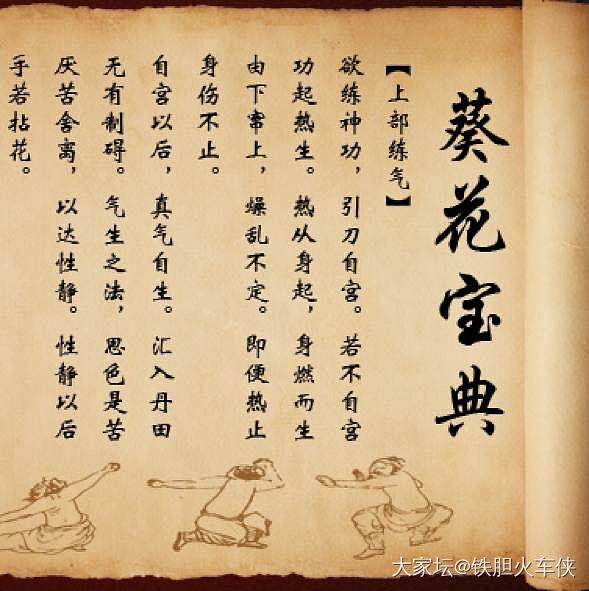 葵花宝典
【上部练气】
欲练神功，引刀自宫。若不自宫
功起热生。热从身起，身燃而生
由下窜上，燥乱不定。即便热止
身伤不止。
自宫以后，真气自生。汇入丹田
无有制碍。气生之法，思色是苦
厌苦舍离，以达性静。性静以后
手若拈花。
大家坛@铁胆火车侠